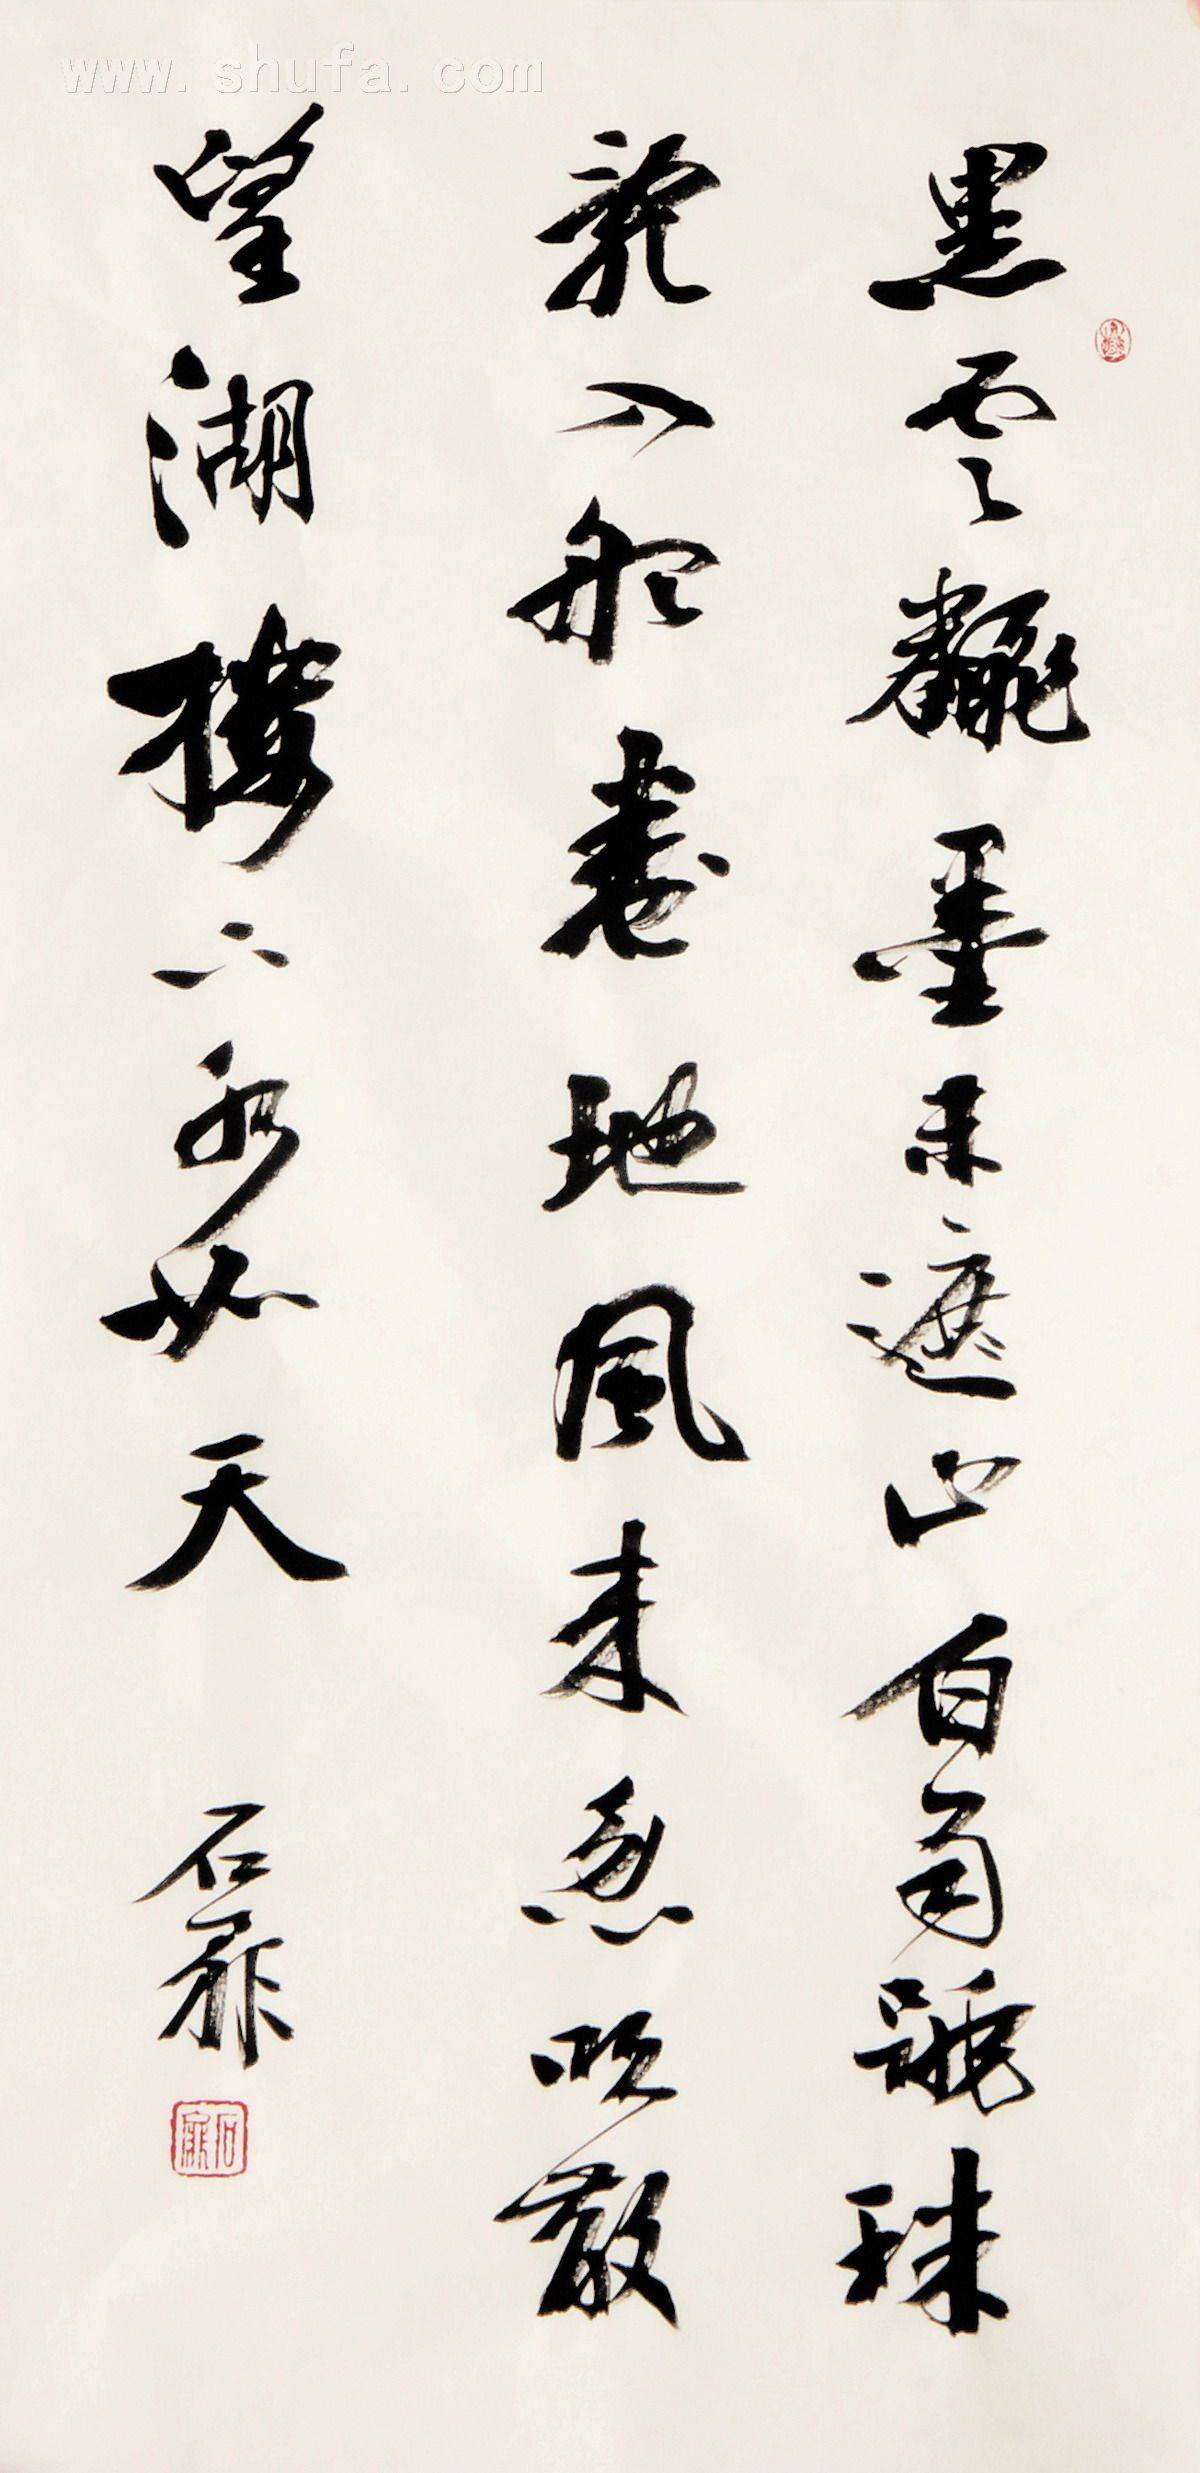 www.shufa.com
黑雲飜墨未遮山白雨跳珠
亂入船卷地風来忽吹散
望湖樓下水如天
石